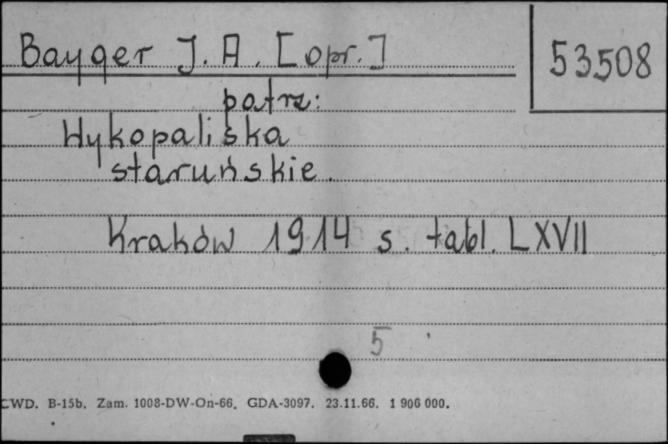 Bayger J. A. [opr.]
53508
patrz:
Wykopaliska
staruńskie.
Kraków 1914 s. tabl. LXVII
5
CWD. B-15b. Zam. 1008-DW-On-66. GDA-3097. 23.11.66. 1 906 000.